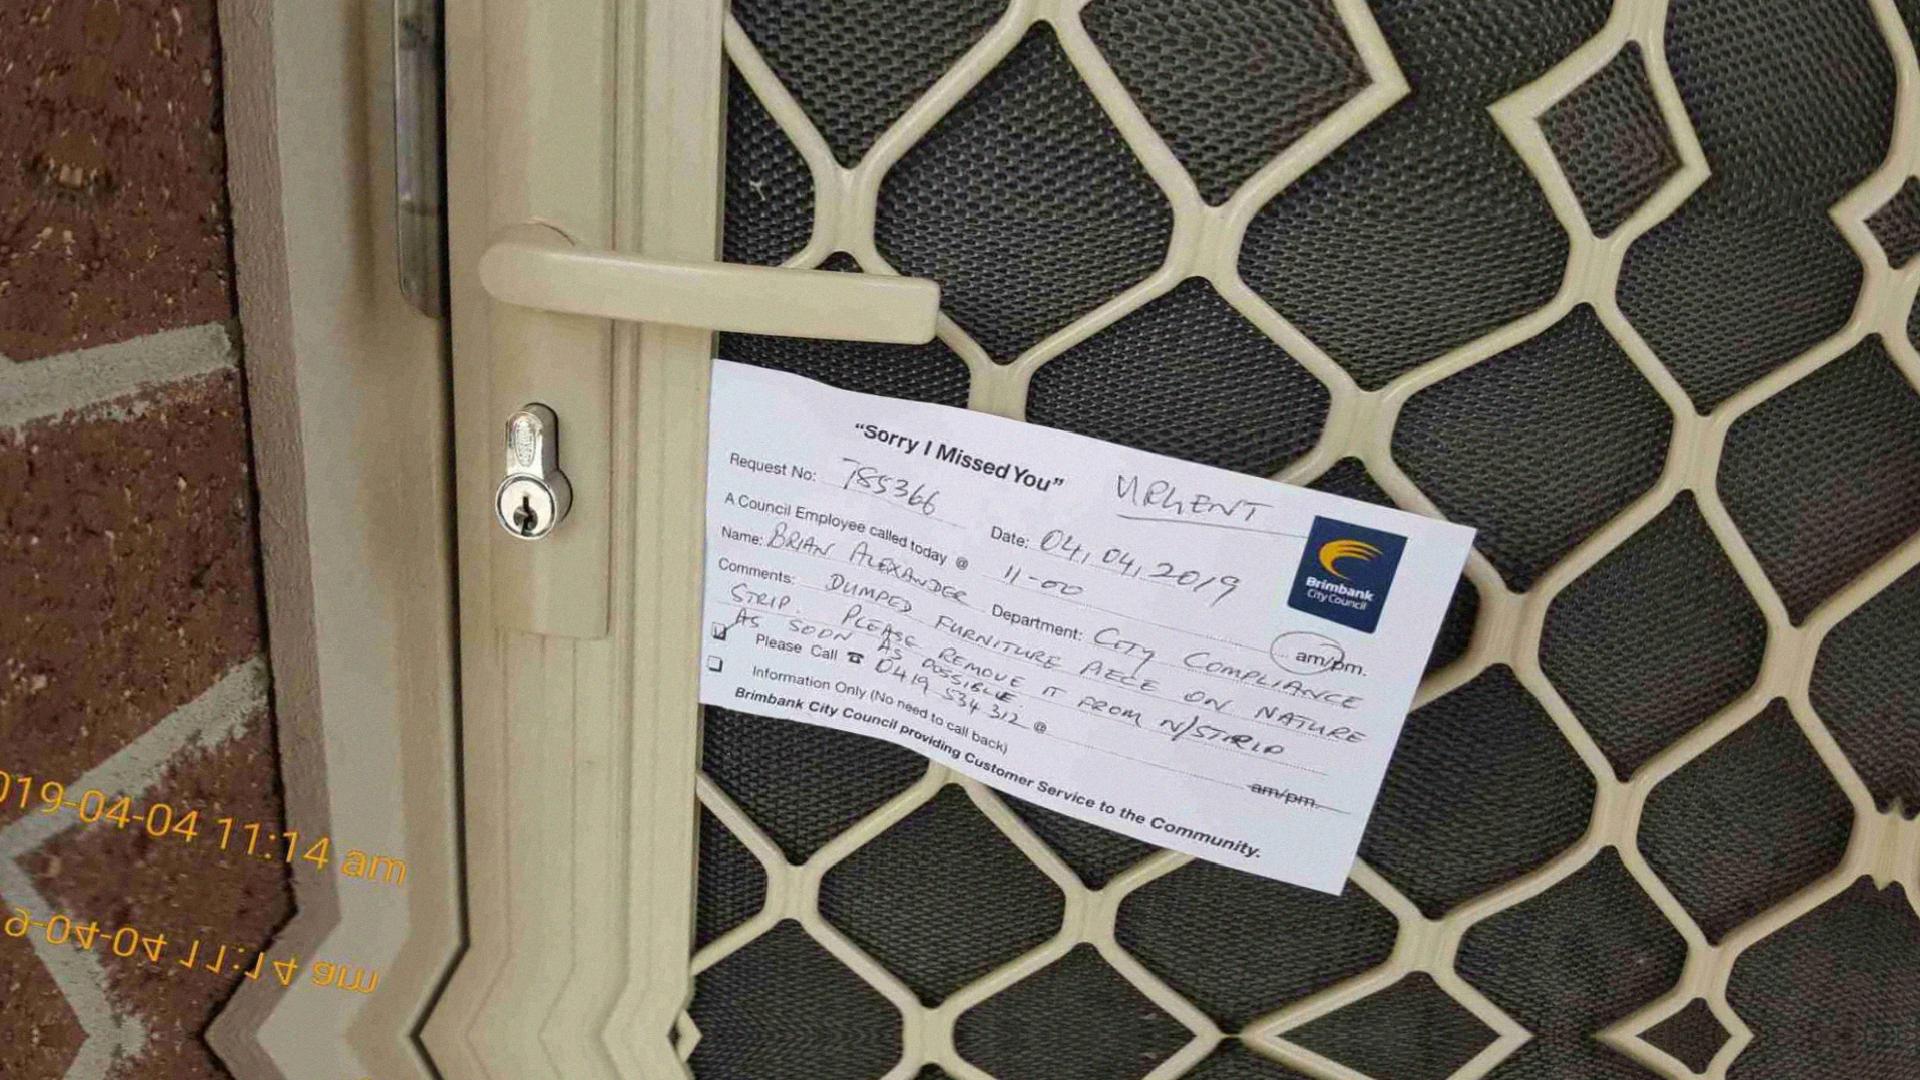 “Sorry I Missed You”
URGENT
Request No: 785366 Date: 04,04,2019
A Council Employee called today @ 11-00 am/pm.
Name: BRIAN ALEXANDER Department: CITY COMPLIANCE
Comments: DUMPED FURNITURE PIECE ON NATURE
STRIP. PLEASE REMOVE IT FROM N/STRIP
AS SOON AS POSSIBLE.
Please Call ☎ 0419 534 312 @ am/pm.
Information Only (No need to call back)
Brimbank City Council providing Customer Service to the Community.
Brimbank
City Council
019-04-04 11:14 am
9-04-04 11:14 am